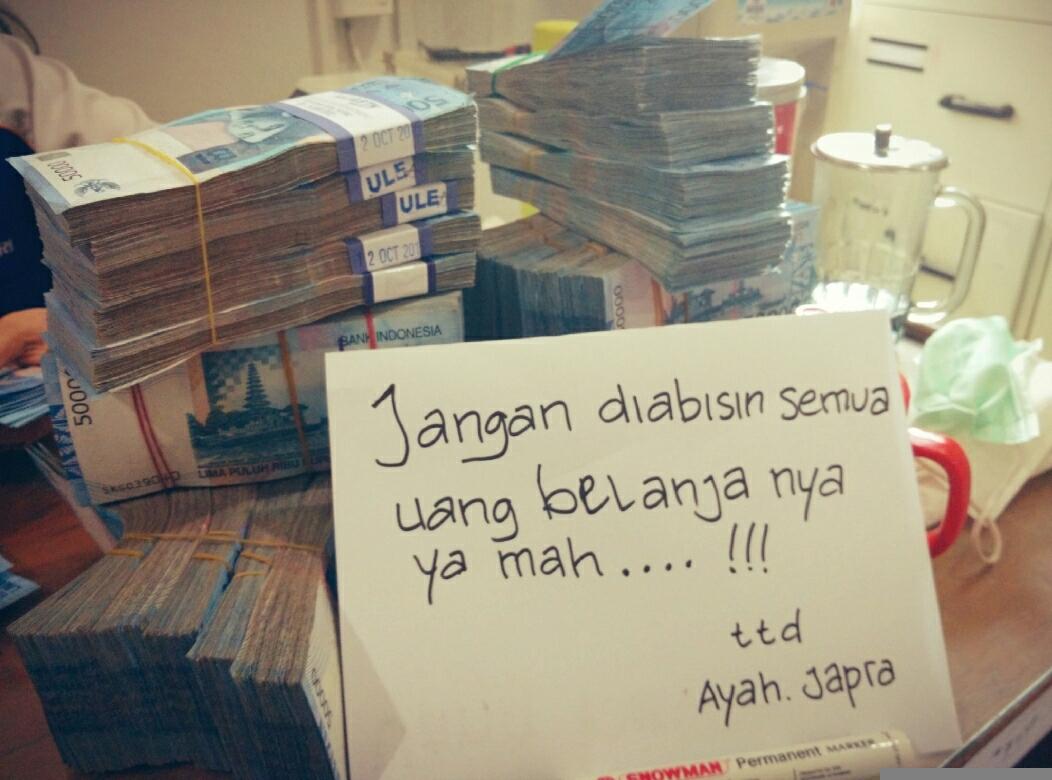 50000
50
2 OCT 201
ULE
ULE
2 OCT 201
BANK INDONESIA
5000
LIMA PULUH RIBU
Jangan diabisin semua
uang belanja nya
ya mah.... !!!
ttd
Ayah. Japra
SNOWMAN Permanent MARKER